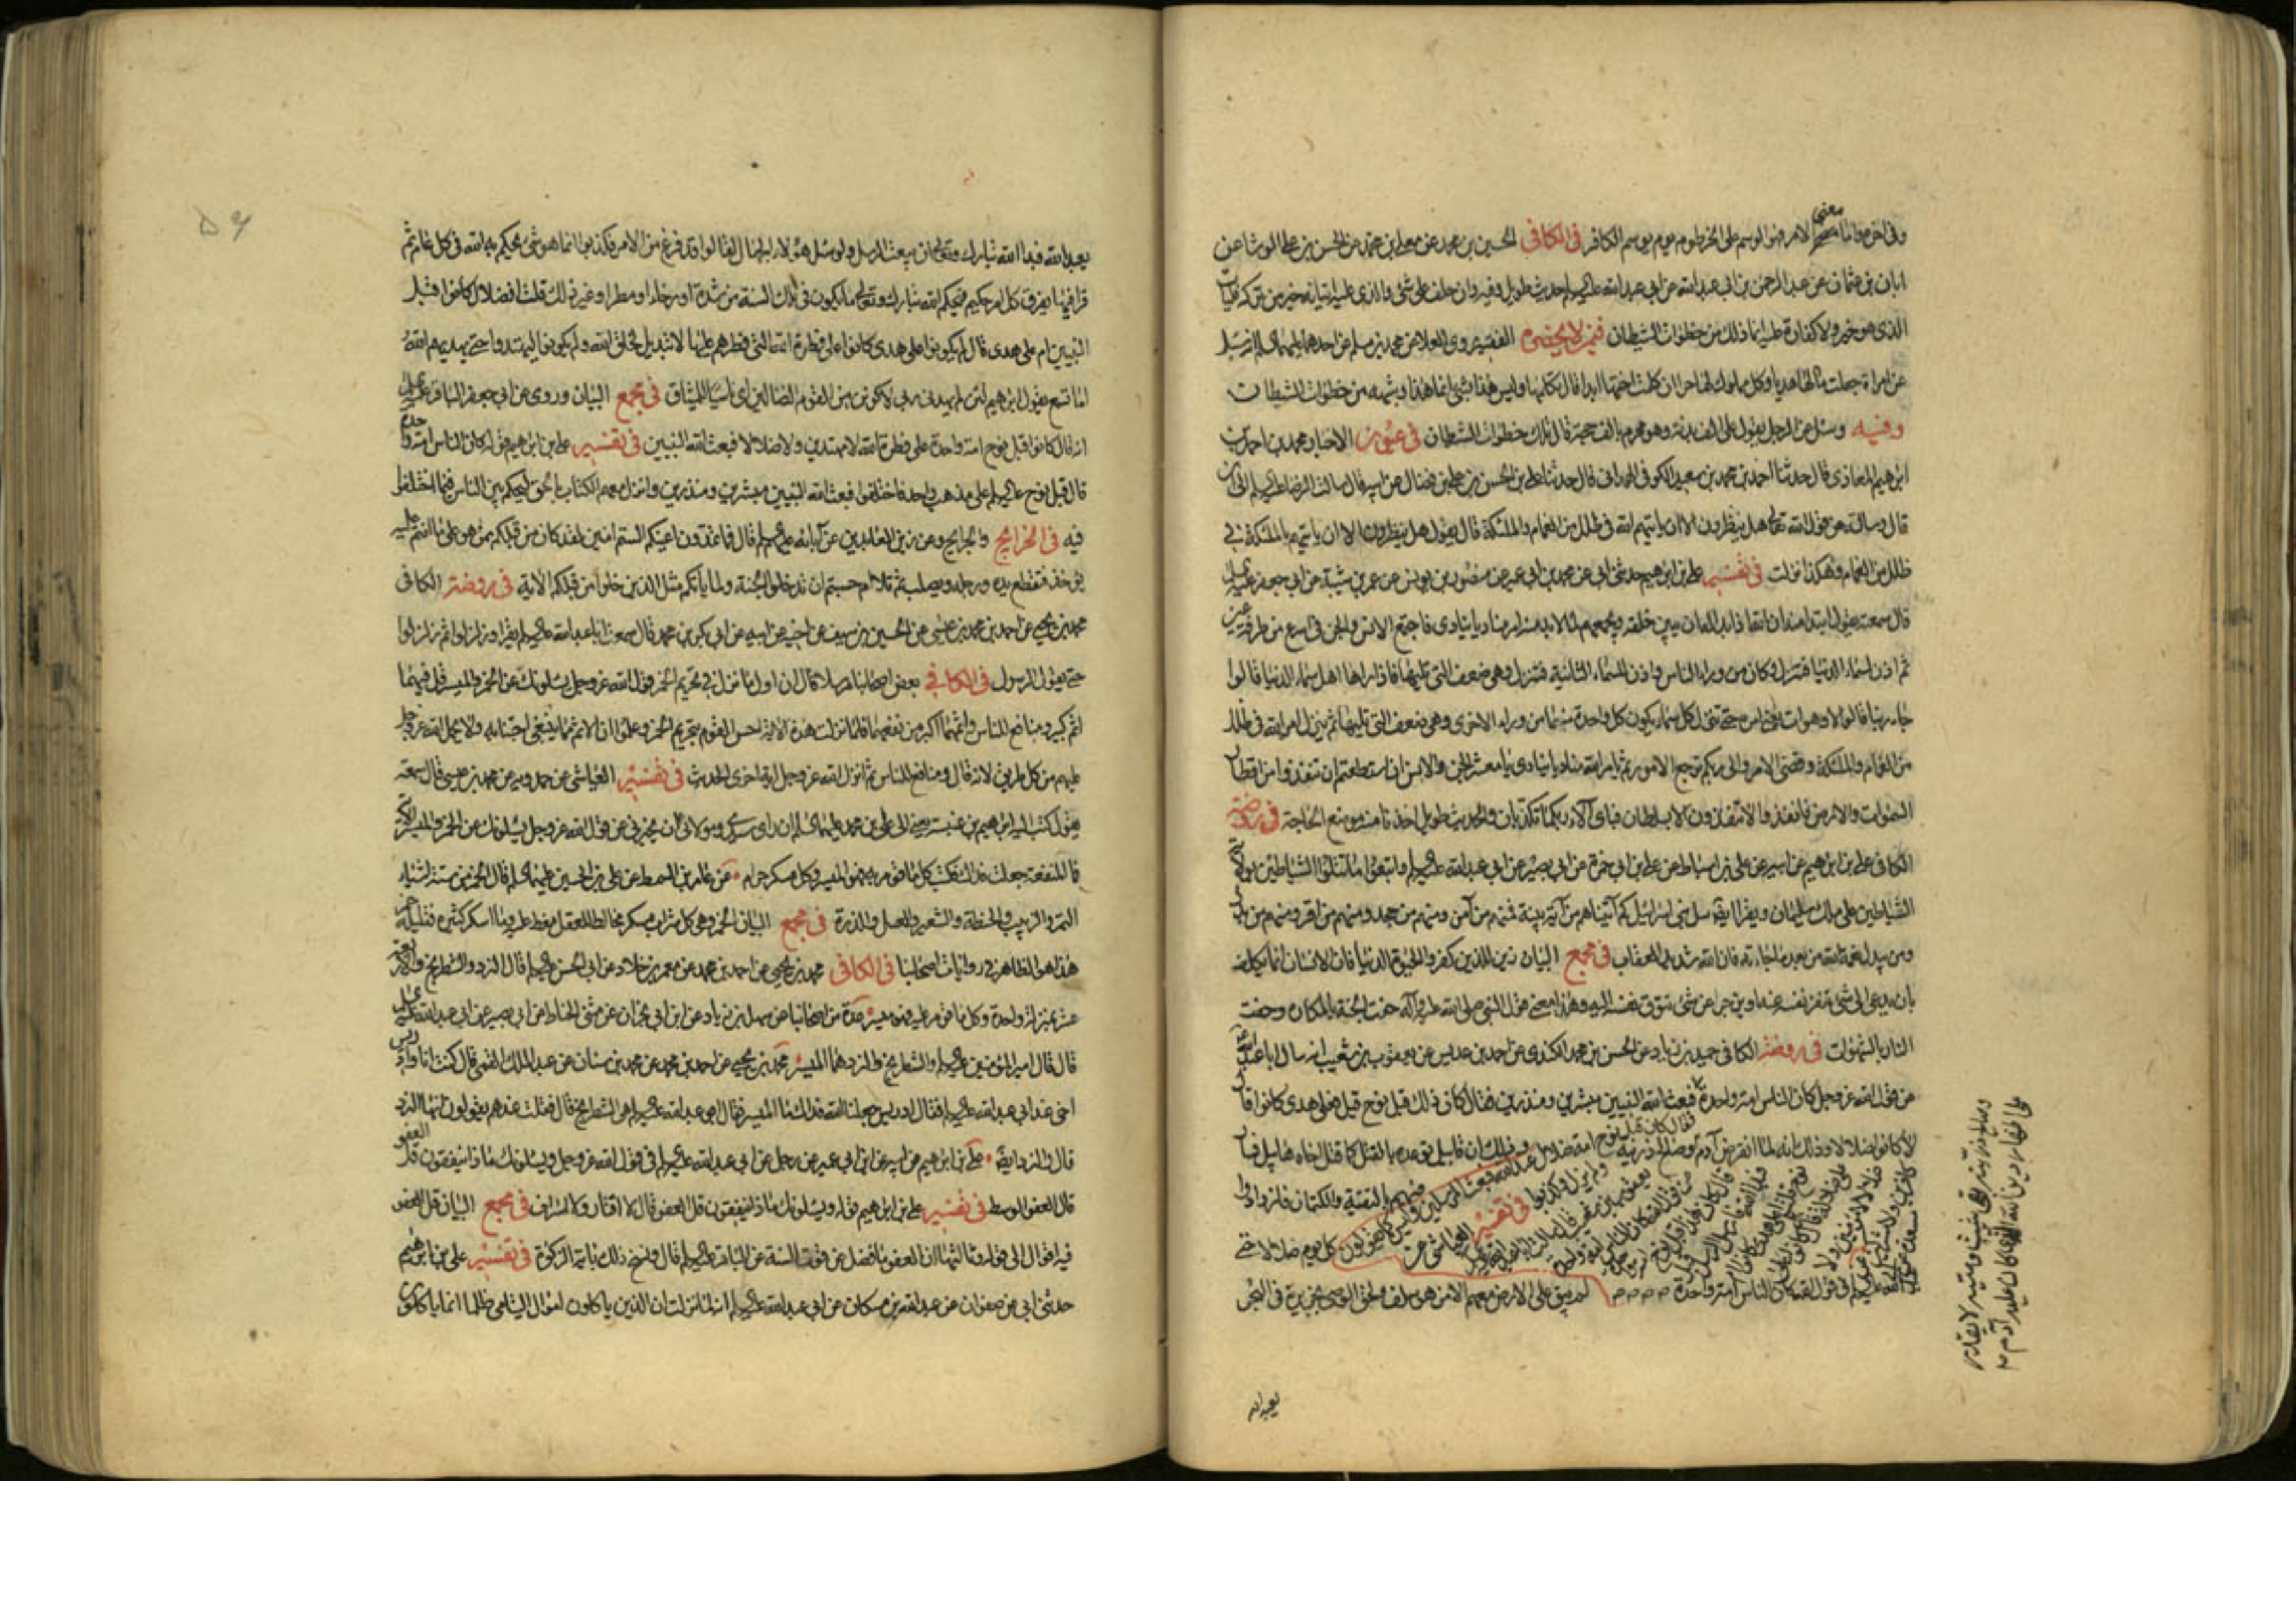 وفي اخره واما معنى الامر فهو الوسم على الخرطوم يوم يوسم الكافر في الكافي الحسين بن محمد عن معلى بن محمد عن الحسن بن علي الوشا عن
ابان بن عثمان عن عبد الرحمن بن ابي عبد الله عن ابي عبد الله عليه السلم حديث طويل وفيه وان حلف على شئ والذي عليه اتيانه خير من تركه فليات
الذي هو خير ولا كفارة عليه انما ذلك من خطوات الشيطان فيمن لا يحضره الفقيه روى العلا عن محمد بن مسلم عن احدهما عليهما السلم انه سئل
عن امراة جعلت مالها هديا وكل مملوك لها حرا ان كلمت اختها ابدا قال تكلمها وليس هذا بشئ انما هذا وشبهه من خطوات الشيطان
وفيه وسئل عن الرجل يقول علي الف بدنة وهو محرم بالف حجة قال تلك خطوات الشيطان في عيون الاخبار محمد بن احمد بن
ابرهيم المعاذي قال حدثنا احمد بن محمد بن سعيد الكوفي الهمداني قال حدثنا علي بن الحسن بن علي بن فضال عن ابيه قال سالت الرضا عليه السلم الى ان
قال وسالته عن قول الله تعالى هل ينظرون الا ان ياتيهم الله في ظلل من الغمام والملئكة قال يقول هل ينظرون الا ان ياتيهم بالملئكة في
ظلل من الغمام وهكذا نزلت في تفسير علي بن ابرهيم حدثني ابي عن محمد بن ابي عمير عن منصور بن يونس عن عمر بن شيبة عن ابي جعفر عليه السلم
قال سمعته يقول ابتدا منه ان الله اذا بدا له ان يبين خلقه ويجمعهم لما لا بد منه امر مناديا ينادي فاجتمع الانس والجن في اسرع من طرفة عين
ثم اذن لسماء الدنيا فتنزل وكان من وراء الناس واذن للسماء الثانية فتنزل وهي ضعف التي تليها فاذا راها اهل سماء الدنيا قالوا
جاء ربنا قالوا لا وهو ات يعني امره حتى تنزل كل سماء يكون كل واحدة منها من وراء الاخرى وهي ضعف التي تليها ثم ينزل امر الله في ظلل
من الغمام والملئكة وقضي الامر والى ربكم ترجع الامور ثم يامر الله مناديا ينادي يا معشر الجن والانس ان استطعتم ان تنفذوا من اقطار
السموات والارض فانفذوا لا تنفذون الا بسلطان فباي آلاء ربكما تكذبان والحديث طويل اخذنا منه موضع الحاجة في روضة
الكافي علي بن ابرهيم عن ابيه عن علي بن اسباط عن علي بن ابي حمزة عن ابي بصير عن ابي عبد الله عليه السلم واتبعوا ما تتلوا الشياطين بولاية
الشياطين على ملك سليمان ويقرا ايضا سل بني اسرائيل كم آتيناهم من آية بينة فمنهم من آمن ومنهم من جحد ومنهم من اقر ومنهم من بدل
ومن يبدل نعمة الله من بعد ما جاءته فان الله شديد العقاب في مجمع البيان زين للذين كفروا الحيوة الدنيا فان الانسان انما يكلف
بان يدعى الى شئ تنفر نفسه عنه او يزجر عن شئ تتوق نفسه اليه وهذا معنى قول النبي صلى الله عليه وآله حفت الجنة بالمكاره وحفت
النار بالشهوات في روضة الكافي حميد بن زياد عن الحسن بن محمد الكندي عن احمد بن عديس عن يعقوب بن شعيب انه سال ابا عبد الله
عن قول الله عز وجل كان الناس امة واحدة فبعث الله النبيين مبشرين ومنذرين فقال كان ذلك قبل نوح قيل فعلى هدى كانوا قال
لا كانوا ضلالا وذلك انه لما انقرض آدم وصلح ذريته
بالتقية والكتمان فازدادوا
كل يوم ضلالا حتى
في قول الله كان الناس امة واحدة لم يبق على الارض معهم الا من هو سلف ولحق الوصي بجزيرة في البحر
يعبد الله
يعبد الله فبدا لله تبارك وتعالى ان يبعث الرسل ولو سئل هؤلاء الجهال لقالوا قد فرغ من الامر وكذبوا انما هو شئ يحكم به الله في كل عام ثم
قرا فيها يفرق كل امر حكيم فيحكم الله تبارك وتعالى ما يكون في تلك السنة من شدة او رخاء او مطر او غير ذلك قلت افضلال كانوا قبل
النبيين ام على هدى قال لم يكونوا على هدى كانوا على فطرة الله التي فطرهم عليها لا تبديل لخلق الله ولم يكونوا ليهتدوا حتى يهديهم الله
اما تسمع يقول ابرهيم لئن لم يهدني ربي لاكونن من القوم الضالين اي ناسيا للميثاق في مجمع البيان وروي عن ابي جعفر الباقر عليه السلم
انه قال كانوا قبل نوح امة واحدة على فطرة الله لا مهتدين ولا ضلالا فبعث الله النبيين في تفسير علي بن ابرهيم قوله كان الناس امة واحدة
قال قبل نوح عليه السلم على مذهب واحد فاختلفوا فبعث الله النبيين مبشرين ومنذرين وانزل معهم الكتاب بالحق ليحكم بين الناس فيما اختلفوا
فيه في الخرايج والجرايح وعن زين العابدين عن آبائه عليهم السلم قال فما تمدون اعينكم الستم امنين لقد كان من قبلكم ممن هو على ما انتم عليه
يؤخذ فتقطع يده ورجله ويصلب ثم تلا ام حسبتم ان تدخلوا الجنة ولما ياتكم مثل الذين خلوا من قبلكم الاية في روضة الكافي
محمد بن يحيى عن احمد بن محمد بن عيسى عن الحسين بن سيف عن اخيه عن ابيه عن ابي بكر بن محمد قال سمعت ابا عبد الله عليه السلم يقرا وزلزلوا ثم زلزلوا
حتى يقول الرسول في الكافي بعض اصحابنا مرسلا قال ان اول ما نزل في تحريم الخمر قول الله عز وجل يسئلونك عن الخمر والميسر قل فيهما
اثم كبير ومنافع للناس واثمهما اكبر من نفعهما فلما نزلت هذه الاية احس القوم بتحريم الخمر وعلموا ان الاثم مما ينبغي اجتنابه ولا يحمل الله عز وجل
عليهم من كل طريق لانه قال ومنافع للناس ثم انزل الله عز وجل اية اخرى الحديث في تفسير العياشي عن حمدويه عن محمد بن عيسى قال سمعته
يقول كتب اليه ابرهيم بن عنبسة يعني الى علي بن محمد عليهما السلم ان راى سيدي ومولائي ان يخبرني عن قول الله عز وجل يسئلونك عن الخمر والميسر الاية
فما المنفعة جعلت فداك فكتب كل ما قومر به فهو الميسر وكل مسكر حرام عن عامر بن السمط عن علي بن الحسين عليهما السلم قال الخمر من ستة اشياء
التمر والزبيب والحنطة والشعير والعسل والذرة في مجمع البيان الخمر وهي كل شراب مسكر مخالط للعقل مغط عليه وما اسكر كثيره فقليله خمر
هذا هو الظاهر في روايات اصحابنا في الكافي محمد بن يحيى عن احمد بن محمد عن معمر بن خلاد عن ابي الحسن عليه السلم قال النرد والشطرنج والاربعة
عشر بمنزلة واحدة وكل ما قومر عليه فهو ميسر عدة من اصحابنا عن سهل بن زياد عن ابن ابي نجران عن مثنى الحناط عن ابي بصير عن ابي عبد الله عليه السلم
قال قال امير المؤمنين عليه السلم والشطرنج والنرد هما الميسر محمد بن يحيى عن احمد بن محمد عن محمد بن سنان عن عبد الملك القمي قال كنت انا وادريس
اخي عند ابي عبد الله عليه السلم فقال ادريس جعلنا الله فداك ما الميسر فقال ابو عبد الله عليه السلم هي الشطرنج قال فقلت عندهم يقولون انها النرد
قال والنرد ايضا علي بن ابرهيم عن ابيه عن ابن ابي عمير عن رجل عن ابي عبد الله عليه السلم في قول الله عز وجل ويسئلونك ماذا ينفقون قل العفو
قال العفو الوسط في تفسير علي بن ابرهيم قوله ويسئلونك ماذا ينفقون قل العفو قال لا اقتار ولا اسراف في مجمع البيان قل العفو
فيه اقوال الى قوله وثالثها ان العفو ما فضل عن قوت السنة عن الباقر عليه السلم قال ونسخ ذلك باية الزكوة في تفسير علي بن ابرهيم
حدثني ابي عن صفوان عن عبد الله بن مسكان عن ابي عبد الله عليه السلم انه لما نزلت ان الذين ياكلون اموال اليتامى ظلما انما ياكلون